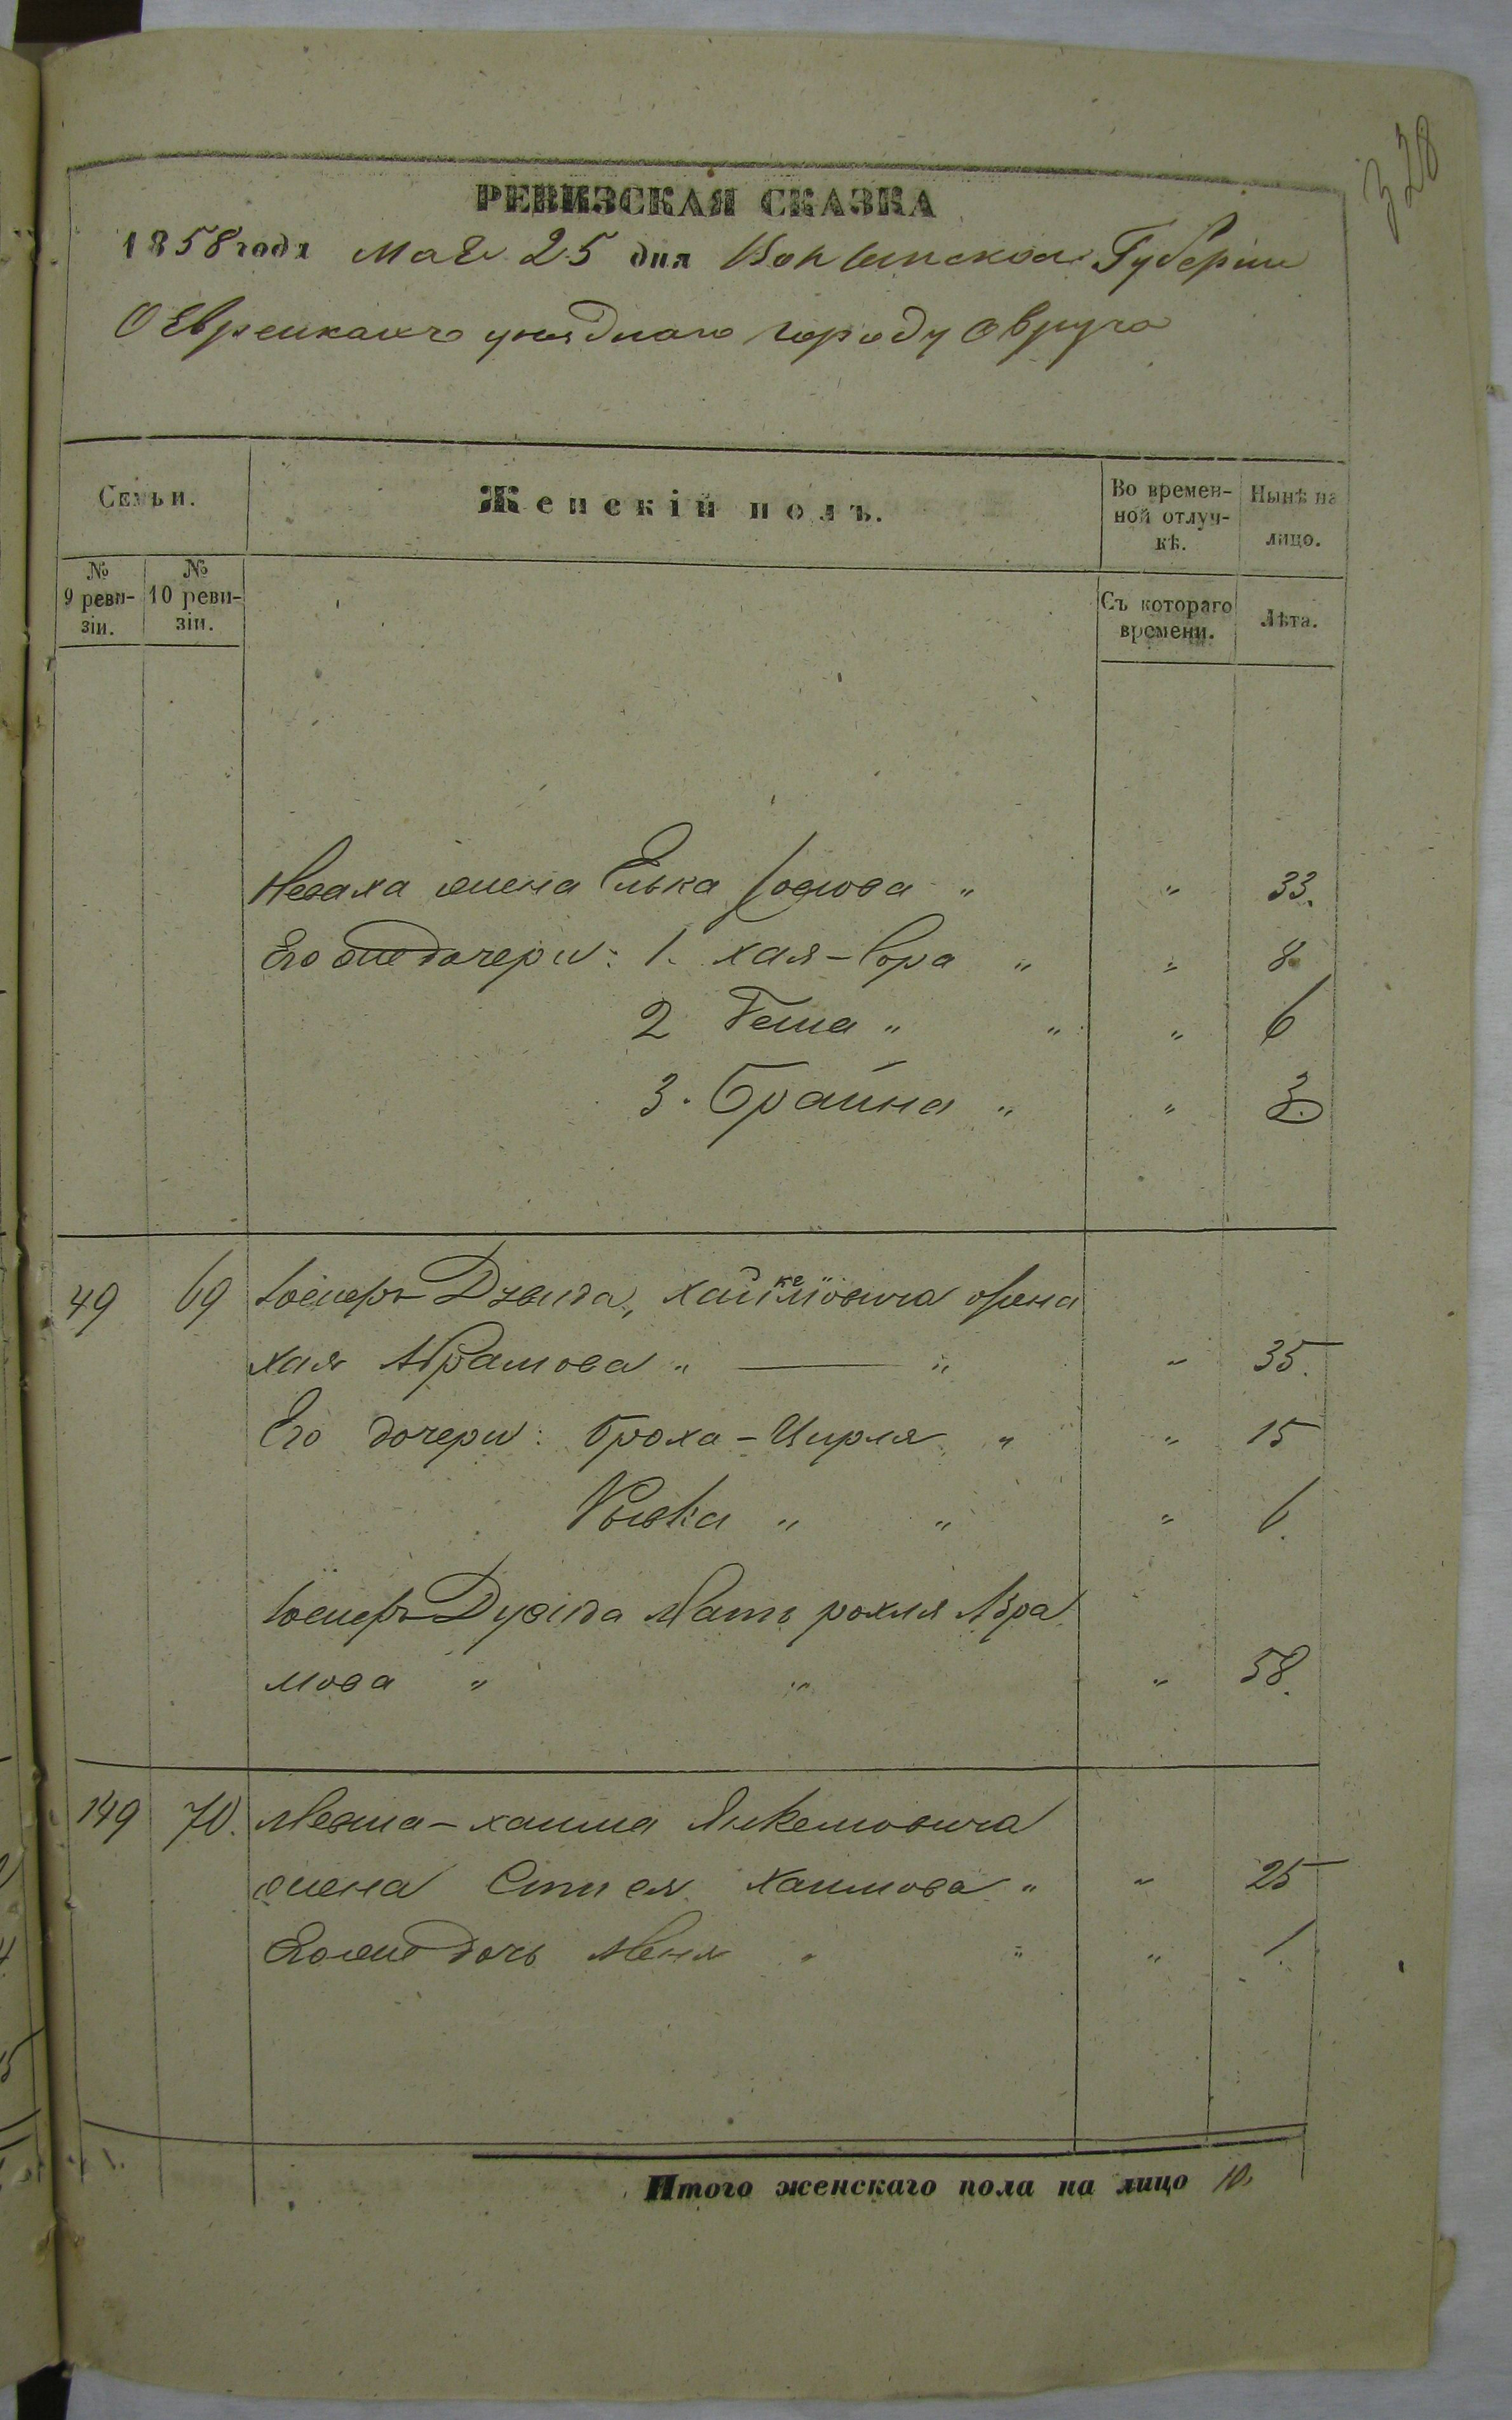 328
РЕВИЗСКАЯ СКАЗКА
1858 года Мая 25 дня Волынской Губерніи
О Евреикахъ уѣзднаго городу Овруча
Семьи.
Женскій полъ.
Во времен-
ной отлуч-
кѣ.
Нынѣ на
лицо.
№
9 реви-
зіи.
№
10 реви-
зіи.
Съ котораго
времени.
Лѣта.
жена Елька " " 33.
Его же дочери: 1. Хая-Сора " " 8
2 Геша " " " 6
3. Брайна " " 3.
49 69 Іосифъ Дувида, жена
Хая Абрамова " — " " 35.
Его дочери: Броха-Цирля " " 15
Рывка " " " 6.
Іосифъ Дувида Мать рохля Абра
мова " " " 58.
149 70. Мевша-хаима Янкелиовича
жена Хаимова " " 25
Его же дочь Меня " " " 1.
Итого женскаго пола на лицо 10.